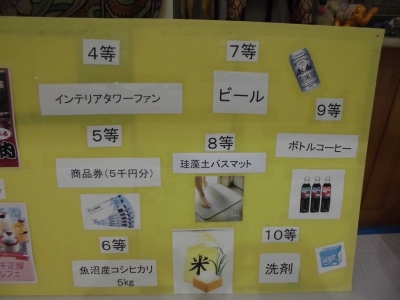 4等
インテリアタワーファン
5等
商品券(5千円分)
6等
魚沼産コシヒカリ
5kg
7等
ビール
8等
珪藻土バスマット
米
9等
ボトルコーヒー
10等
洗剤